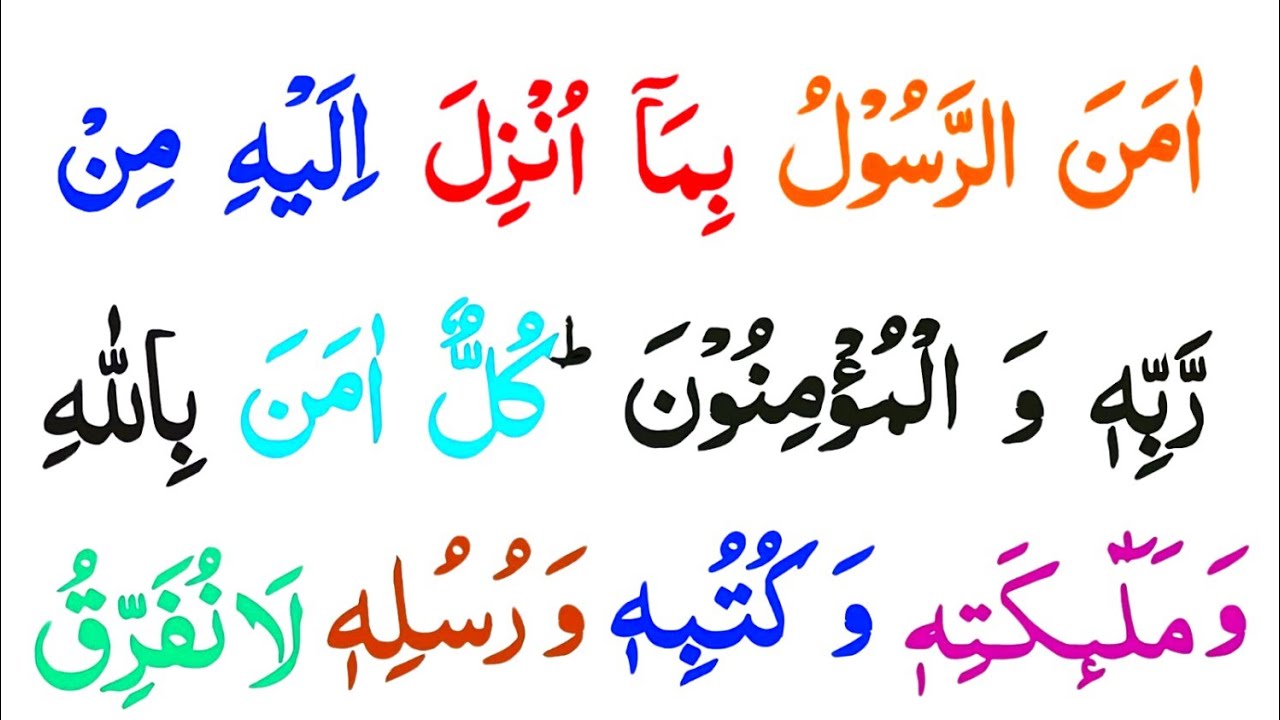 اٰمَنَ الرَّسُوْلُ بِمَاۤ اُنْزِلَ اِلَيْهِ مِنْ
رَّبِّهٖ وَ الْمُؤْمِنُوْنَ ؕ كُلٌّ اٰمَنَ بِاللّٰهِ
وَ مَلٰٓئِكَتِهٖ وَ كُتُبِهٖ وَ رُسُلِهٖ لَا نُفَرِّقُ